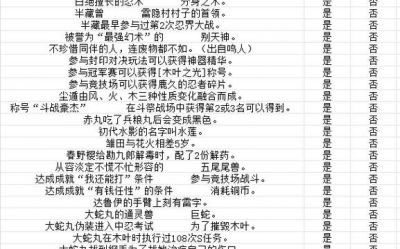 白绝擅长的忍术 分身之术。 是 否
半藏曾 雷隐村村子的首领。 是 否
半藏最早参与过第2次忍界大战。 是 否
被誉为"最强幻术"的 别天神。 是 否
不珍惜同伴的人，连废物都不如。（出自鸣人） 是 否
参与封印对决玩法可以获得神器精华。 是 否
参与冠军赛可以获得[木叶之光]称号。 是 否
参与竞技场可以获得鹿久的忍者碎片。 是 否
尘遁由风、火、木三种性质变化融合而成。 是 否
称号"斗战豪杰" 在斗祭战场中获得第2或3名可以得到。 是 否
赤丸吃了兵粮丸后会变成黑色。 是 否
初代水影的名字叫水莲。 是 否
雏田与花火相差5岁。 是 否
春野樱给勘九郎解毒时，配了2份解药。 是 否
从容淡定不慌不忙形容的 五尾尾兽。 是 否
达成成就"我还能打"条件 参与竞技场战斗。 是 否
达成成就"有钱任性"的条件 消耗铜币。 是 否
达鲁伊的手臂上刻有雷字。 是 否
大蛇丸的通灵兽 巨蛇。 是 否
大蛇丸伪装进入中忍考试 为了摧毁木叶。 是 否
大蛇丸在木叶时执行过108次S任务。 是 否
是 否